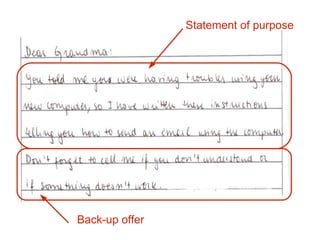 Statement of purpose
Dear Grandma:
You told me you were having troubles using your
new computer, so I have written these instructions
telling you how to send an email using the computer
Don't forget to call me if you don't understand or
if something doesn't work.
Back-up offer